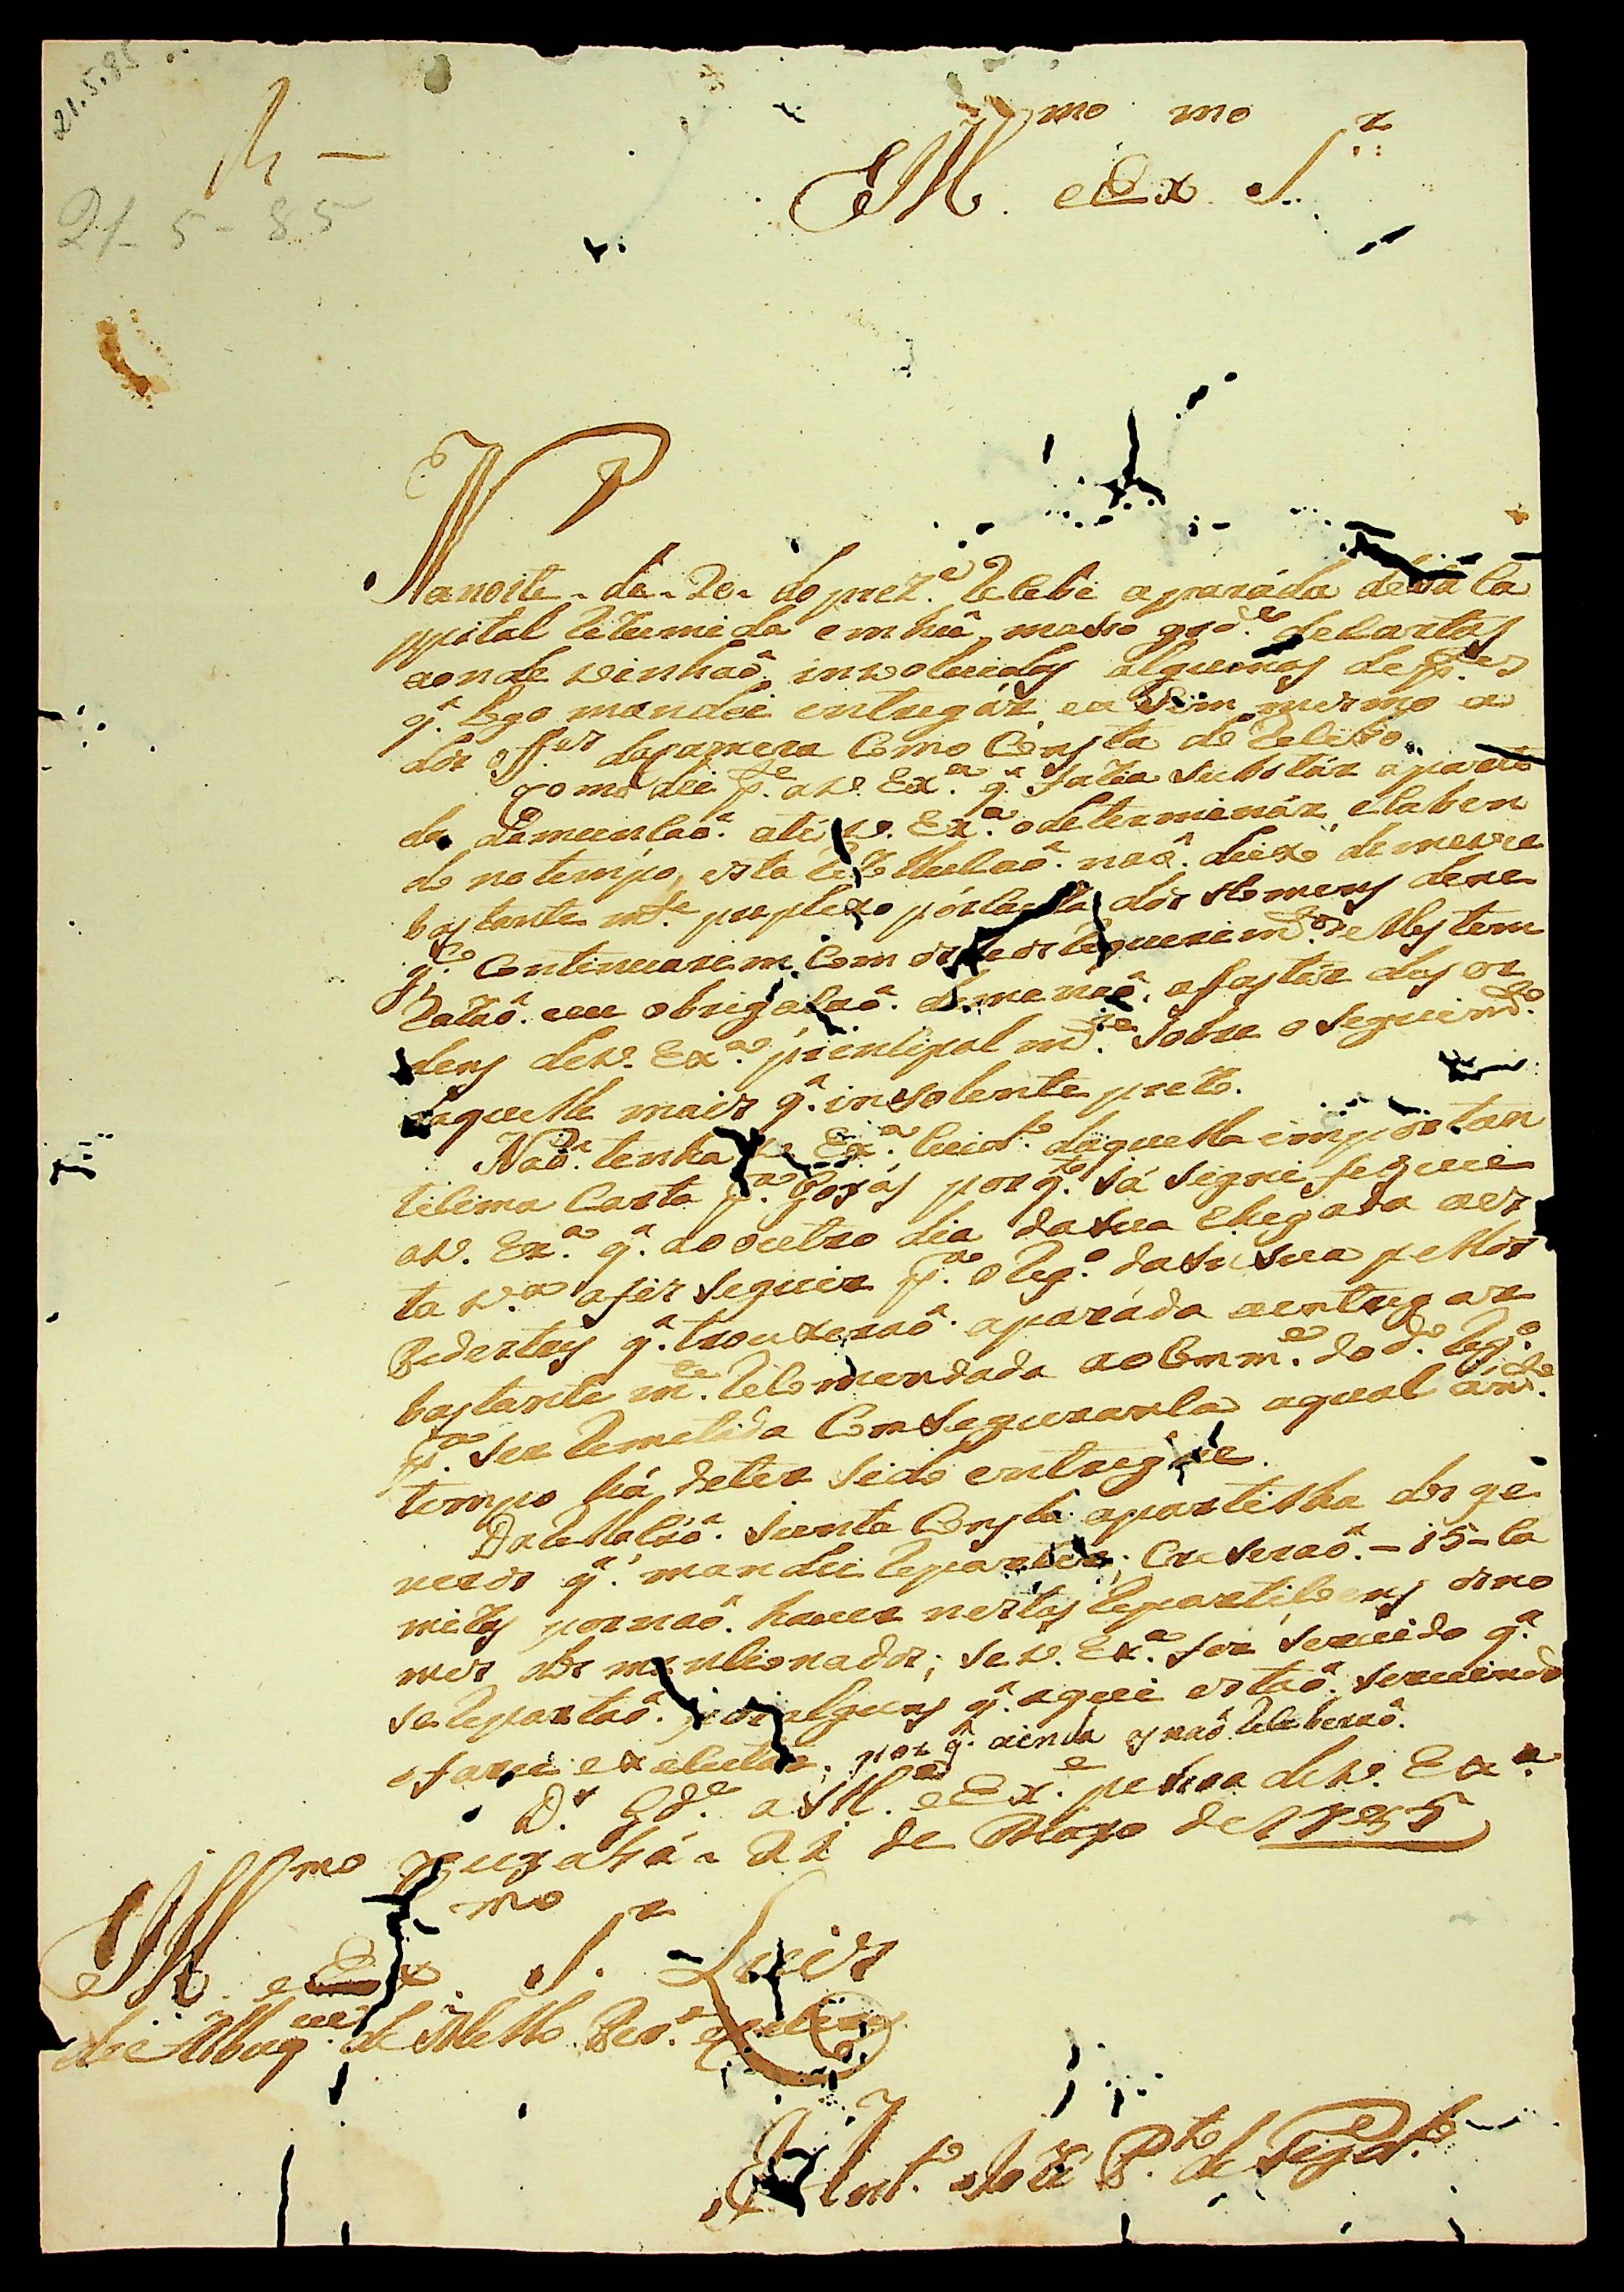 21.5.85
21-5-85
Ill.mo e Ex.mo S.r
Na noite de 20 do prez.e recebi a parada dessa Ca
ppital rezumida em hũ masso grd.e de cartas
aonde vinhaõ involuidas algumas de p.es
q.̂ logo mandei entregár, e a sim mesmo a
dos off.es da camera como Consta do recibo
Como dei p.e a V. Ex.a q.̂ fazia substár a parti
da da meunçaõ até V. Ex.a o determinár, e caben
do no tempo, esta rezulluçaõ naõ deixo de me ver
bastante m.te preplexo por cauza dos Homens de ne
g.o Continuarem com os seos requerim.tos e Mostem
zataõ eu obrigaçaõ de me naõ afastár das or
dens de V. Ex.a principal m.te sobre o seguim.to
daquelle mais q.̂ insolente preto.
Naõ tenha V. Ex.a cuid.o daquella importan
ticima Carta p.a Goyás porq.̂ já segni fiquei
a V. Ex.a q.̂ ao outro dia da sua chegada a es
ta V.a a fis seguir p.a o reg.o da Insua pellos
Pedestres q.̂ trouxeraõ a paráda a entregar
bastante m.te recomendada ao Comm.e do d.o reg.o
p.a ser remetida Com seguransa a qual a m.to
tempo há de ter sido entregue.
Da rellaçaõ junta Consta a partilha dos ge
neros q.̂ mandei repartir; Creseraõ - 15 - ca
mizas por naõ haver nestas repartiçoens os no
mes dos mencionados; se V. Ex.a for servido q.̂
se repartaõ por alguns q.̂ aqui estaõ servindo
o farei executar, por q.̂ ainda os naõ receberaõ.
D.s G.de a Ill.e e Ex.e pessoa de V. Ex.a
Cuyabá 21 de Mayo de 1795
Ill.mo e Ex.mo S.r Luis
de Albuq.ue de Mello Per.a e Caceres
Ant.o Joze P.to de Figd.o